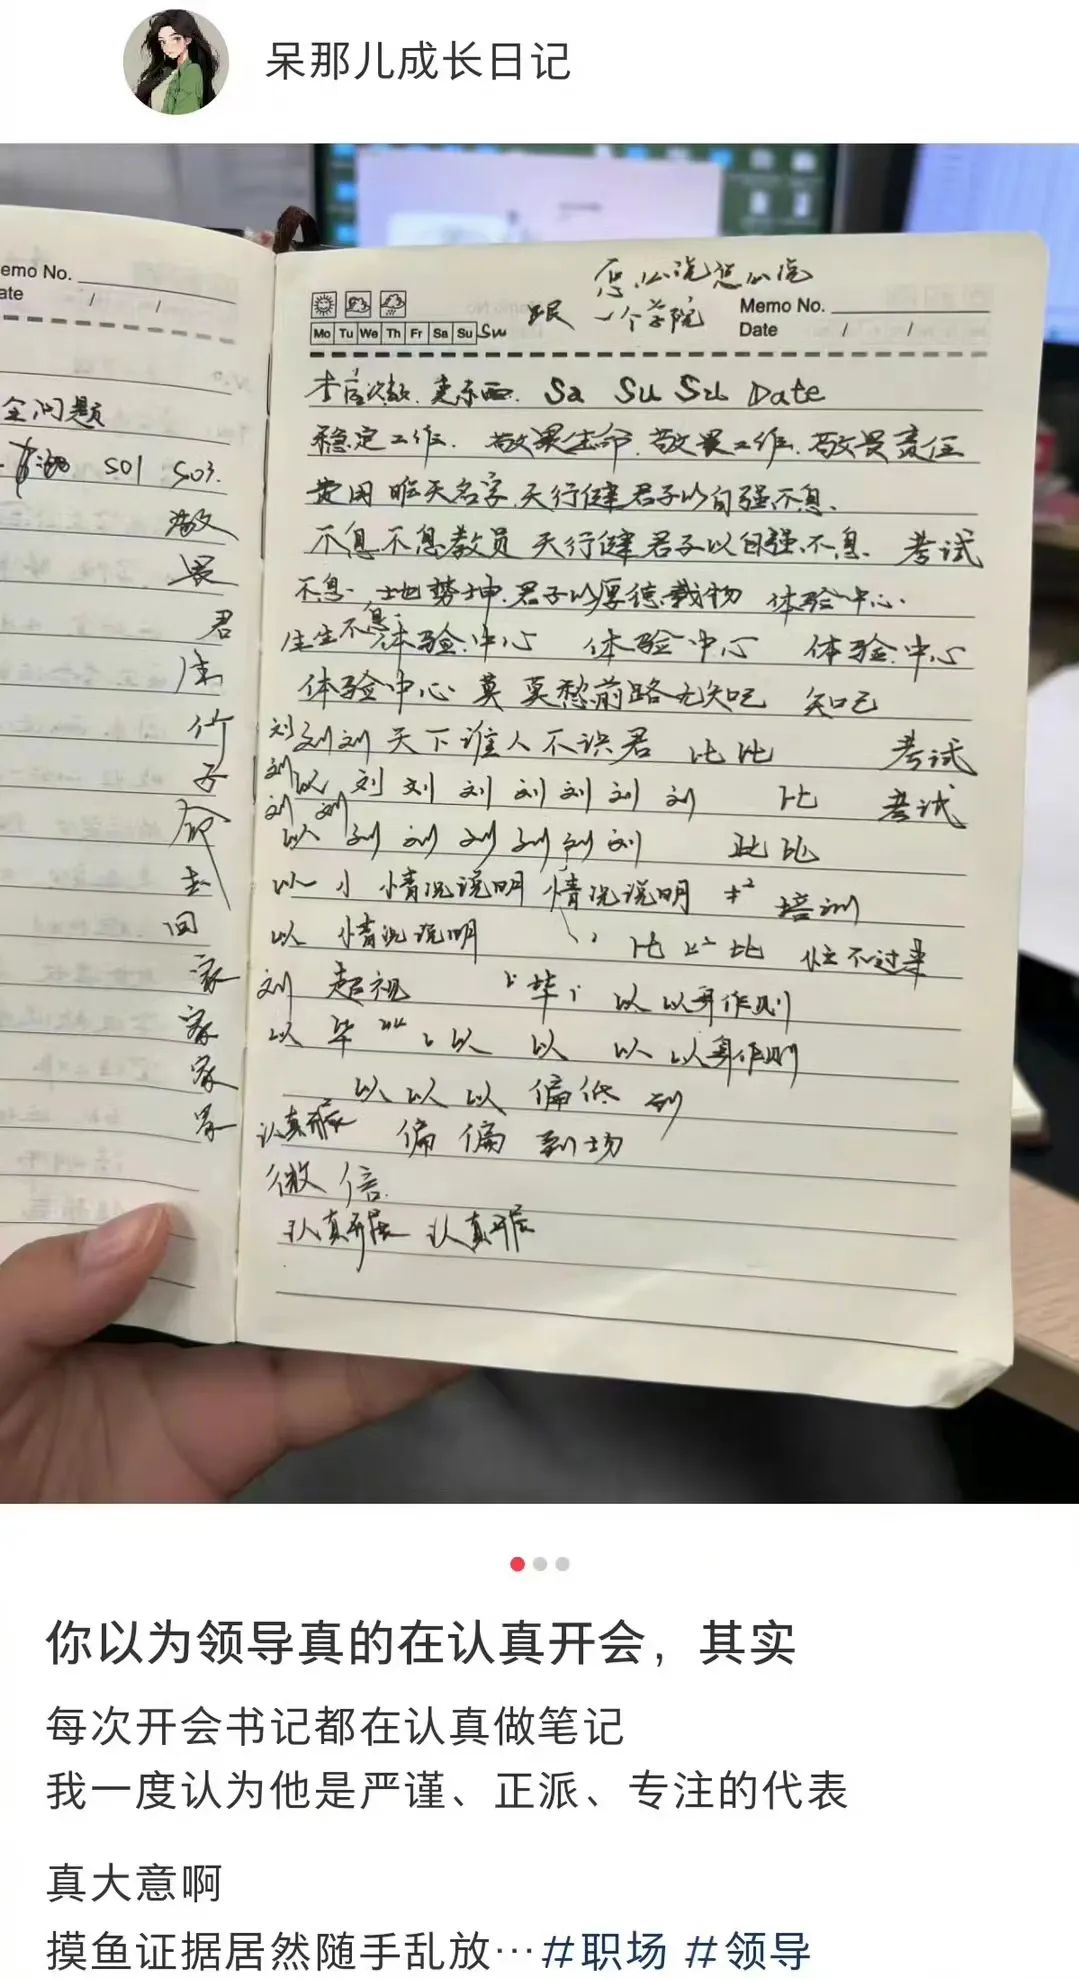 呆那儿成长日记
emo No.
ate / /
全问题
S01 S03.
敬
畏
君
子
命
去
回
家
家
家
怎么说怎么说
一个学院
Memo No.
Date / /
Mo Tu We Th Fr Sa Su Su
Sa Su Su Date
稳定工作. 敬畏生命. 敬畏工作. 敬畏责任
费用 昨天名字. 天行健君子以自强不息.
不息不息教员 天行健君子以自强不息. 考试
不息. 地势坤. 君子以厚德载物 体验中心.
生生不息. 体验中心 体验中心 体验中心
体验中心 莫 莫愁前路无知己 知己
刘刘刘天下谁人不识君 比比 考试
刘以 刘 刘 刘 刘 刘 刘 刘 比 考试
刘 刘
以 刘 刘 刘 刘 刘 刘 比比
以一小 情况说明 情况说明 培训
以 情况说明 比 比 忙不过来
刘 超视 毕 以 以身作则
以 毕 以 以 以 以身作则
以 以 以 偏低 到
认真开展 偏 偏 到场
微信
认真开展 认真开展
你以为领导真的在认真开会，其实
每次开会书记都在认真做笔记
我一度认为他是严谨、正派、专注的代表
真大意啊
摸鱼证据居然随手乱放…#职场 #领导